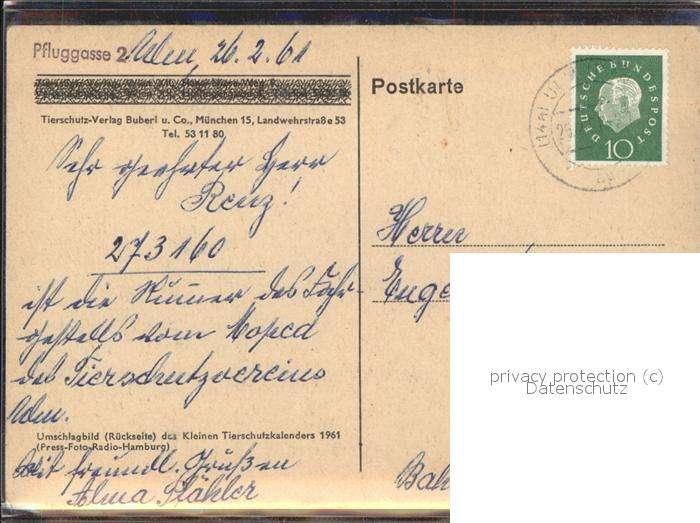 Pfluggasse 2 Ulm, 26.2.61
Tierschutz-Verlag Buberl u. Co., München 15, Landwehrstraße 53
Tel. 53 11 80
Sehr geehrter Herr
Renz!
273160
ist die Nummer des Fahr-
gestells vom Moped
des Tierschutzvereins
Ulm.
Umschlagbild (Rückseite) des Kleinen Tierschutzkalenders 1961
(Press-Foto-Radio-Hamburg)
Mit freundl. Grüßen
Alma Stähler
Postkarte
DEUTSCHE BUNDESPOST
10
Herrn
privacy protection (c)
Datenschutz